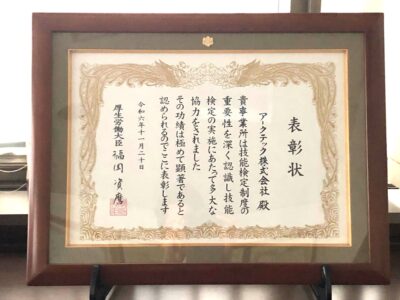 表彰状
アークテック株式会社 殿
貴事業所は技能検定制度の
重要性を深く認識し技能
検定の実施にあたって多大な
協力をされました
その功績は極めて顕著であると
認められるのでここに表彰します
令和六年十一月二十日
厚生労働大臣 福岡資麿